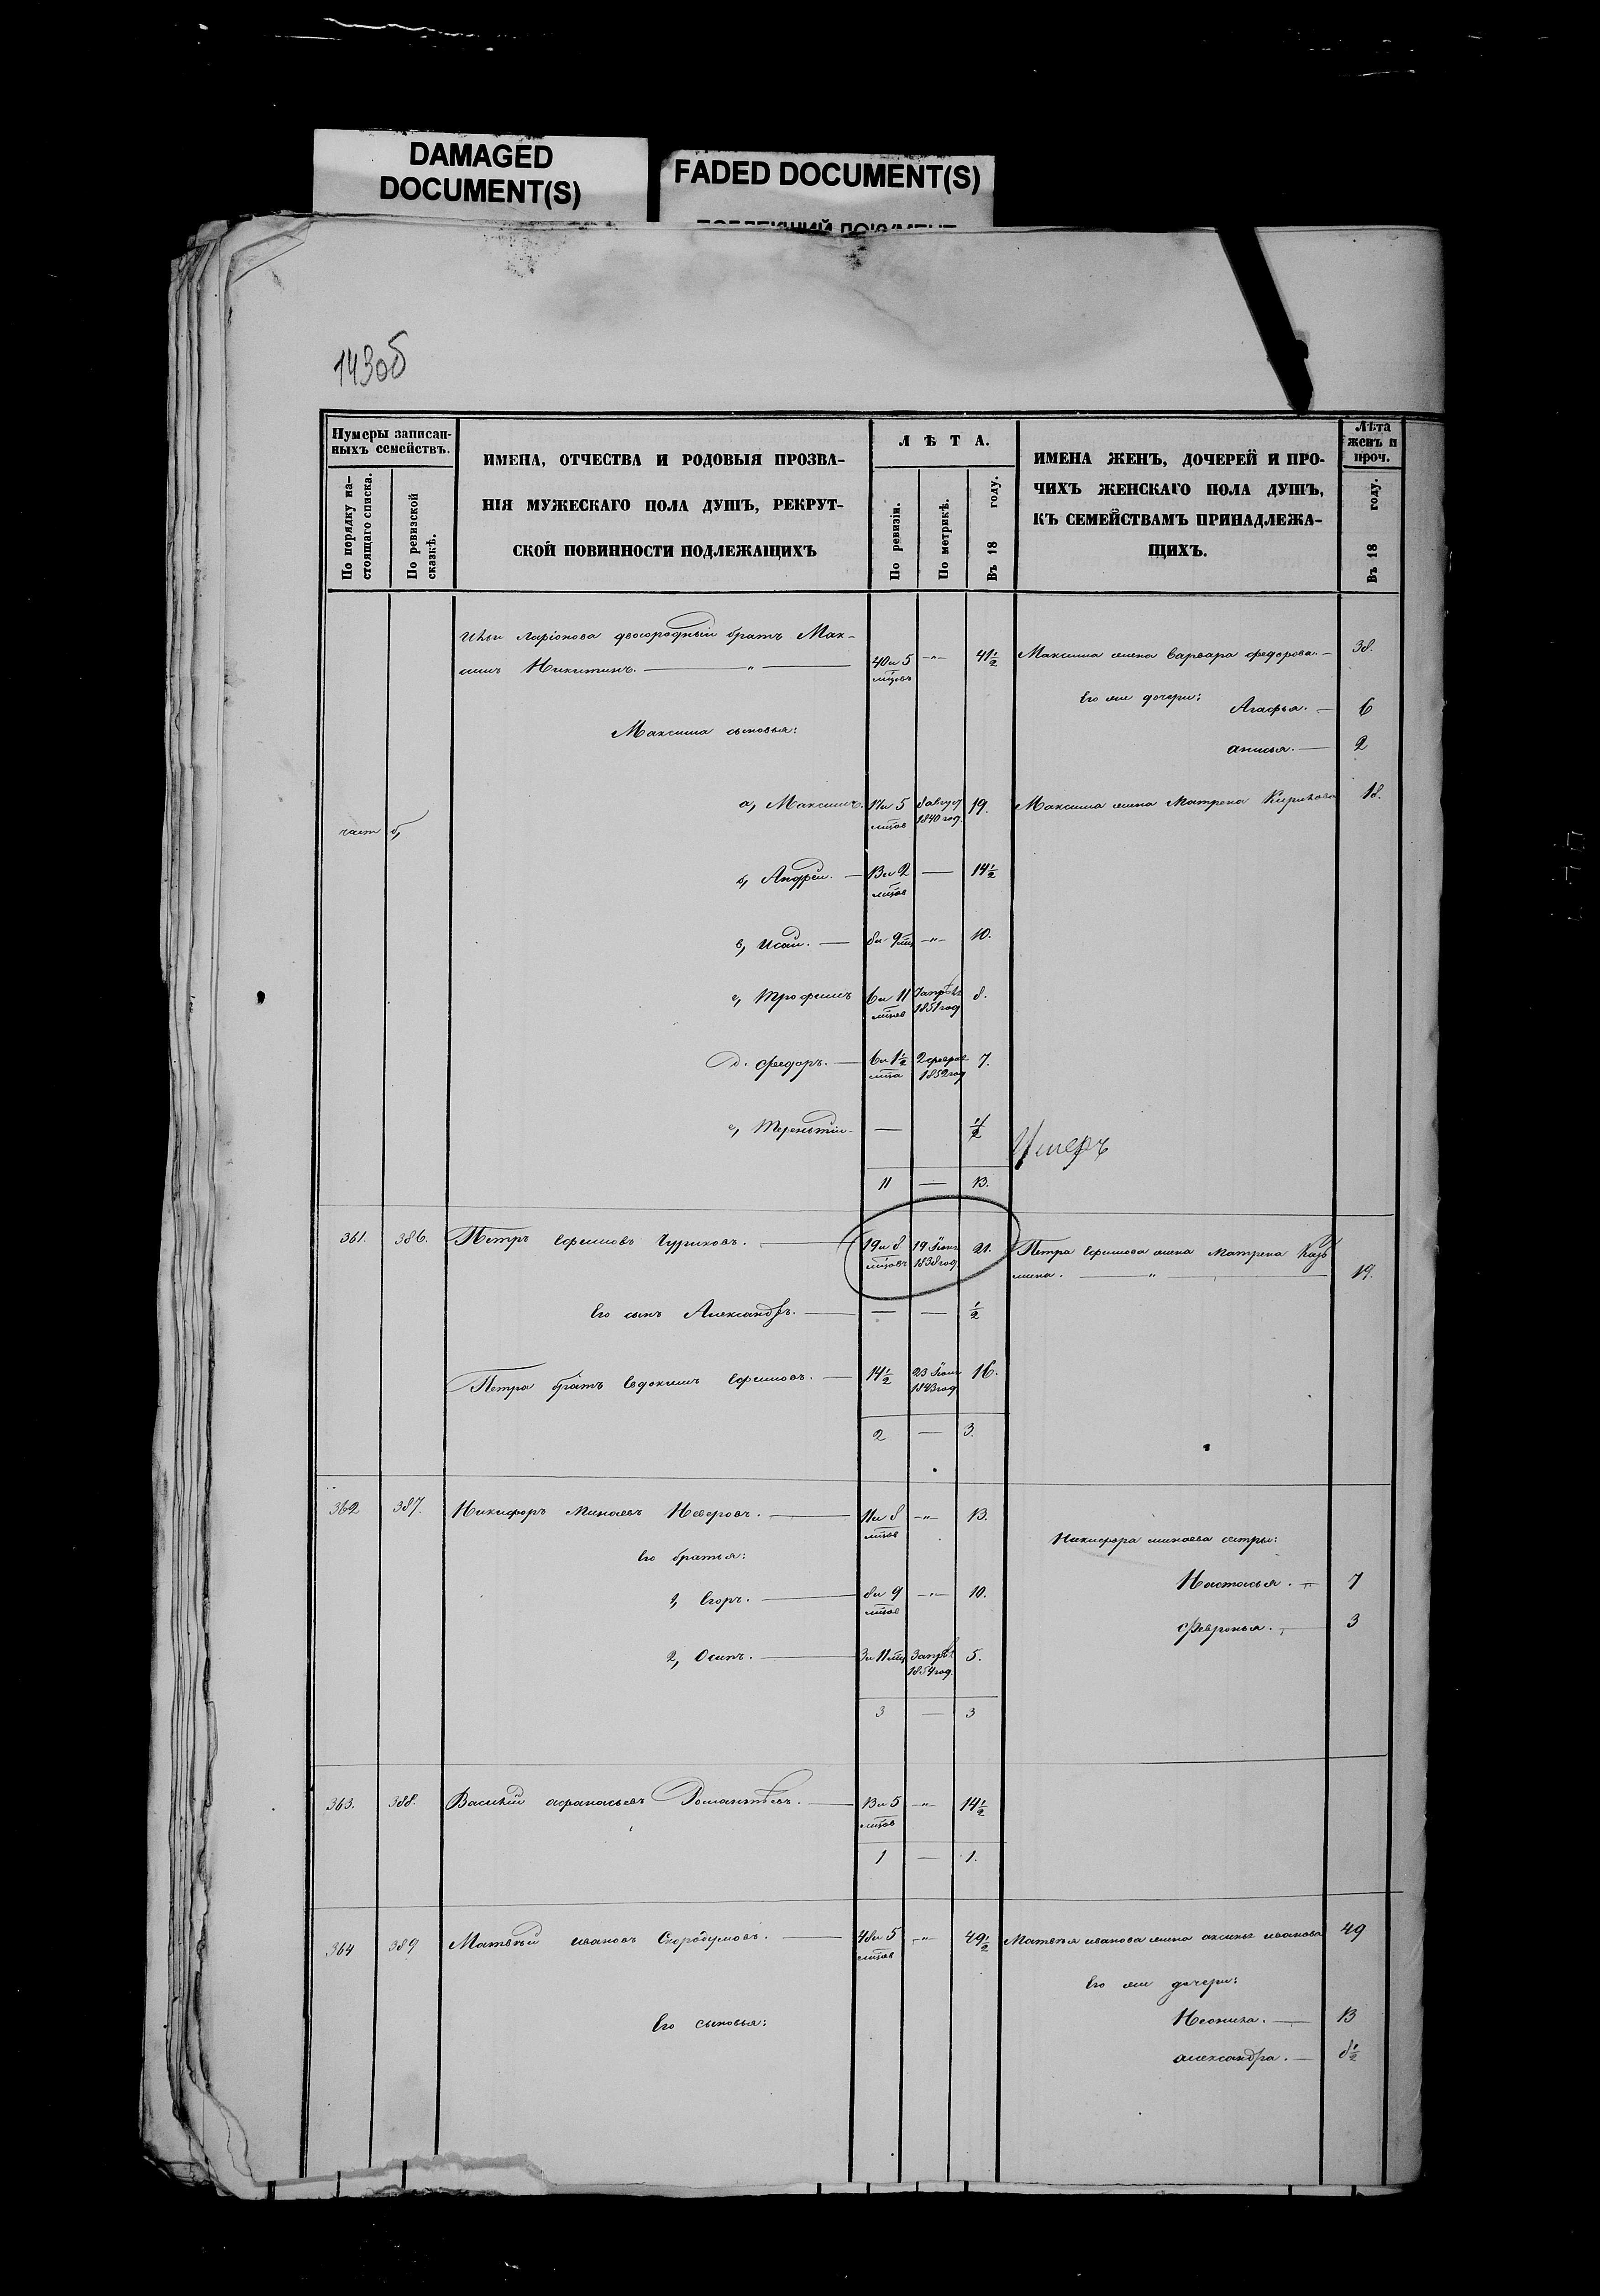 DAMAGED
DOCUMENT(S)
FADED DOCUMENT(S)
143об
Нумеры записан-
ныхъ семействъ.
По порядку на-
стоящаго списка.
По ревизской
сказкѣ.
ИМЕНА, ОТЧЕСТВА И РОДОВЫЯ ПРОЗВА-
НІЯ МУЖЕСКАГО ПОЛА ДУШЪ, РЕКРУТ-
СКОЙ ПОВИННОСТИ ПОДЛЕЖАЩИХЪ
ЛѢТА.
По ревизіи.
По метрикѣ.
Въ 18 году.
ИМЕНА ЖЕНЪ, ДОЧЕРЕЙ И ПРО-
ЧИХЪ ЖЕНСКАГО ПОЛА ДУШЪ,
КЪ СЕМЕЙСТВАМЪ ПРИНАДЛЕЖА-
ЩИХЪ.
Лѣта
женъ и
проч.
Въ 18 году.
Ильи Ларіонова двоюродный братъ Мак-
симъ Никитинъ. — " —
40 и 5
мцовъ
—"—
41½
Максима жена Варвара Федорова. —
38.
Его же дочери:
Агафья. —
6
Анисья. —
2
Максима сыновья:
а, Максимъ.
17 и 5
мцов
8 Август
1840 год.
19.
Максима жена Матрена Кирилова
18.
б, Андрей. —
13 и 2
мцов
—
14½
в, Исай. —
8 и 9 мц
—"—
10.
г, Трофимъ
6 и 11
мцов
1851 год
8.
д. Федоръ. —
6 и 1½
мца
2 Феврал
1852 год
7.
е, Терентій —
—
½
Умеръ
11 — 13.
361.
386.
Петръ Ефимовъ Чуриковъ. —
19 и 8
мцовъ
19 Іюн
1838 год
21.
Петра Ефимова жена Матрена Казь
мина. — " —
19.
Его сынъ Александръ. —
— — ½
Петра братъ Евдокимъ Ефимовъ. —
14½
23 Іюн
1843 год
16.
2 — 3.
362
387.
Никифоръ Минаевъ Неверовъ. —
11 и 8
мцов
—"—
13.
Никифора Минаева сестры:
Его братья:
Настасья. —
7
1, Егоръ. —
8 и 9
мцов
—"—
10.
Февронья. —
3
2, Осипъ. —
3 и 11 мц
1854 год.
5.
3 — 3
363.
388.
Василій Афанасьевъ Романтѣевъ. —
13 и 5
мцов
—"—
14½
1 — 1.
364
389
Матвѣй Ивановъ Скородумовъ. —
48 и 5
мцов
—"—
49½
Матвѣя Иванова жена Аксинья Иванова
49
Его же дочери:
Его сыновья:
Неонила. —
13
Александра. —
8½